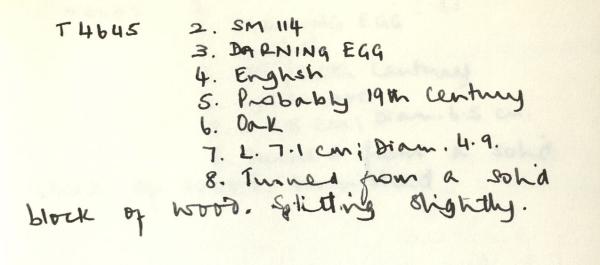 T4645 2. SM 114
3. DARNING EGG
4. English
5. Probably 19th century
6. Oak
7. L. 7.1 cm; Diam. 4.9.
8. Turned from a solid
block of wood. Splitting slightly.